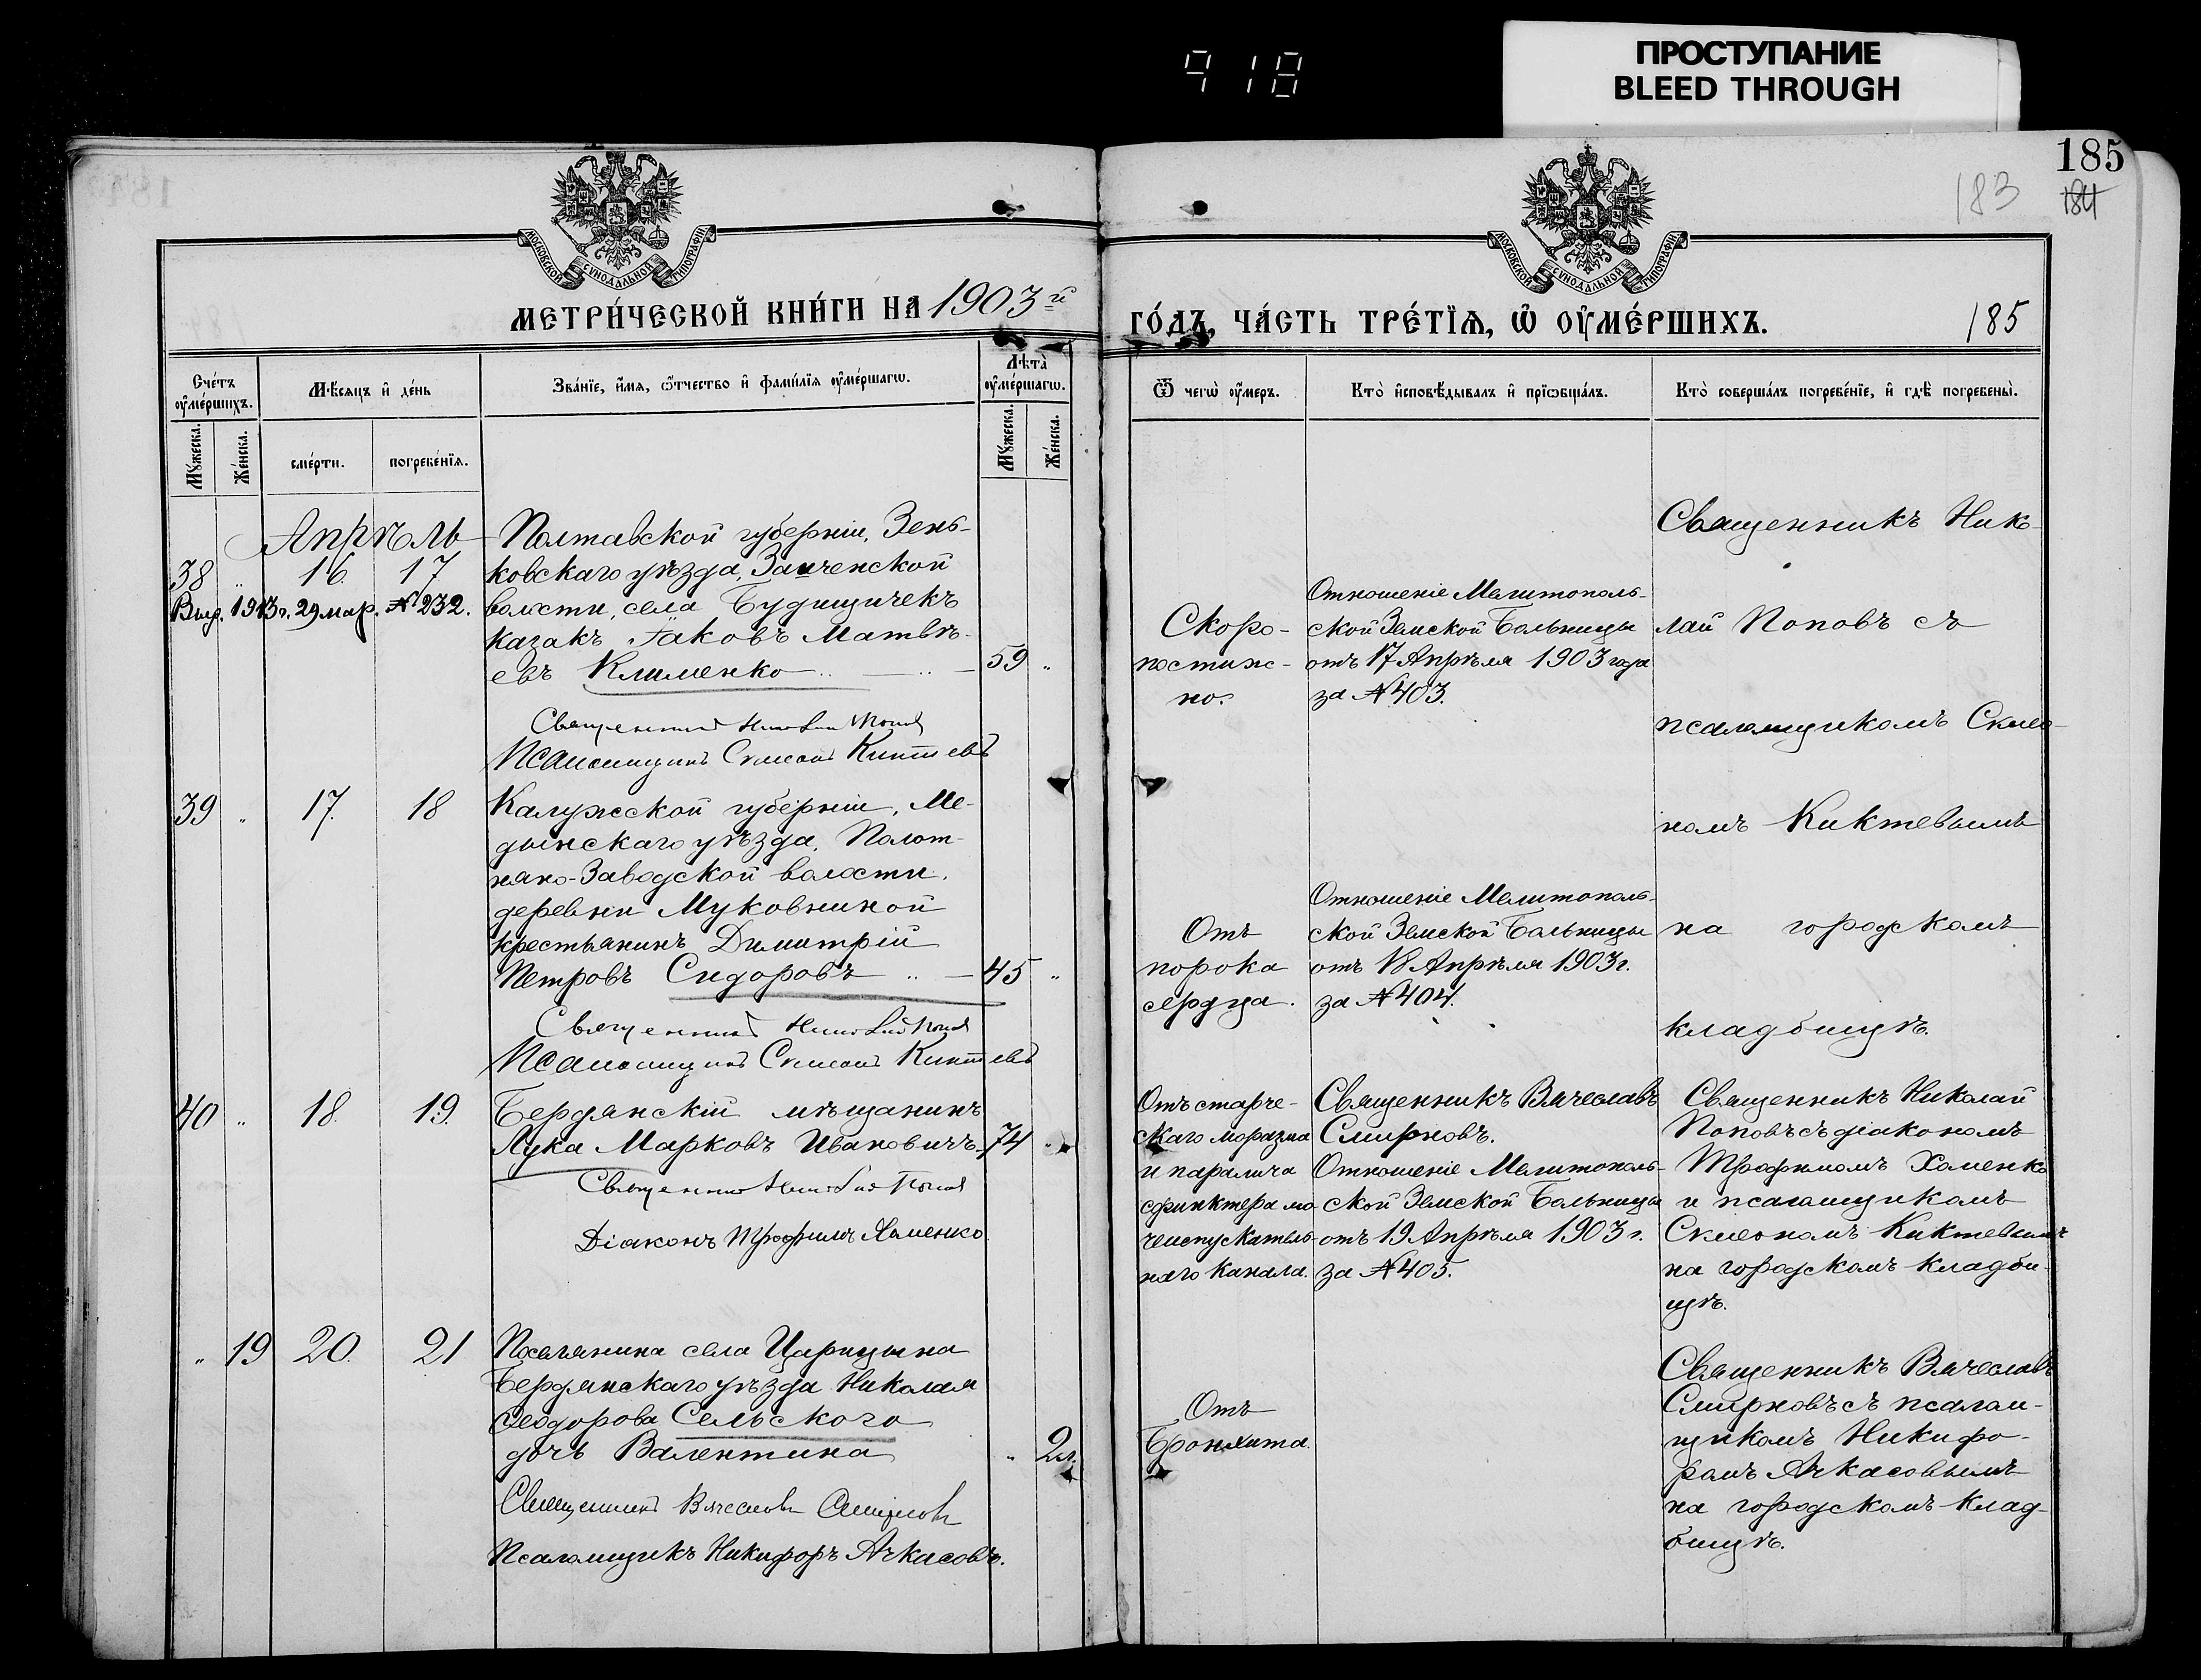 918
ПРОСТУПАНИЕ
BLEED THROUGH
185
183 184
МОСКОВСКОЙ СѴНОДАЛЬНОЙ ТИПОГРАФІИ
МОСКОВСКОЙ СѴНОДАЛЬНОЙ ТИПОГРАФІИ
МЕТРИ́ЧЕСКОЙ КНИ́ГИ НА 1903й
ГО́ДЪ, ЧА́СТЬ ТРЕ́ТЇѦ, Ѡ ОУМЕ́РШИХЪ.
185
Сче́тъ оумéршихъ.
Мꙋ́жеска.
Же́нска.
Мѣ́сяцъ и де́нь
сме́рти.
погребе́нїѧ.
Зва́нїе, и́мѧ, ѻ҆́тчество и фамилїѧ оумéршагѡ.
Лѣта̀ оумéршагѡ.
Мꙋ́жеска.
Же́нска.
Ѿ чегѡ̀ оу́меръ.
Кто̀ исповѣ́дывалъ и прїѡбща́лъ.
Кто̀ соверша́лъ погребе́нїе, и гдѣ̀ погребены̀.
Апрѣль
38 " 16. 17
Выд. 1913 г. 29 мар. № 232.
Полтавской губерніи, Зень-
ковскаго уѣзда, Заиченской
волости, села Будищичекъ
казакъ Іаковъ Матвѣ-
евъ Клименко 59 "
Священникъ Николай Поповъ
Псаломщикъ Симеонъ Киктевъ
Скоро-
постиж-
но.
Отношеніе Мелитополь-
ской Земской Больницы
отъ 17 Апрѣля 1903 года
за № 403.
Священникъ Нико-
лай Поповъ съ
псаломщикомъ Симео-
номъ Киктевымъ
на городскомъ
кладбищѣ.
39 " 17. 18
Калужской губерніи, Ме-
дынскаго уѣзда, Полот-
няно-Заводской волости,
деревни Муковниной
крестьянинъ Димитрій
Петровъ Сидоровъ 45 "
Священникъ Николай Поповъ
Псаломщикъ Симеонъ Киктевъ
Отъ
порока
сердца.
Отношеніе Мелитополь-
ской Земской Больницы
отъ 18 Апрѣля 1903 г.
за № 404.
40 " 18. 19.
Бердянскій мѣщанинъ
Лука Марковъ Ивановичъ 74 "
Священникъ Николай Поповъ
Діаконъ Трофимъ Хоменко
Отъ старче-
скаго моразма
и паралича
сфинктера мо-
чеиспускатель-
наго канала.
Священникъ Вячеславъ
Смирновъ.
Отношеніе Мелитополь-
ской Земской Больницы
отъ 19 Апрѣля 1903 г.
за № 405.
Священникъ Николай
Поповъ съ діакономъ
Трофимомъ Хоменко
и псаломщикомъ
Симеономъ Киктевымъ
на городскомъ кладби-
щѣ.
" 19 20. 21
Поселянина села Царицына
Бердянскаго уѣзда Николая
Ѳеодорова Сельского
дочь Валентина " 2 л.
Священникъ Вячеславъ Смирновъ
Псаломщикъ Никифоръ Ачкасовъ.
Отъ
Бронхита.
Священникъ Вячеславъ
Смирновъ съ псалом-
щикомъ Никифо-
ромъ Ачкасовымъ
на городскомъ клад-
бищѣ.